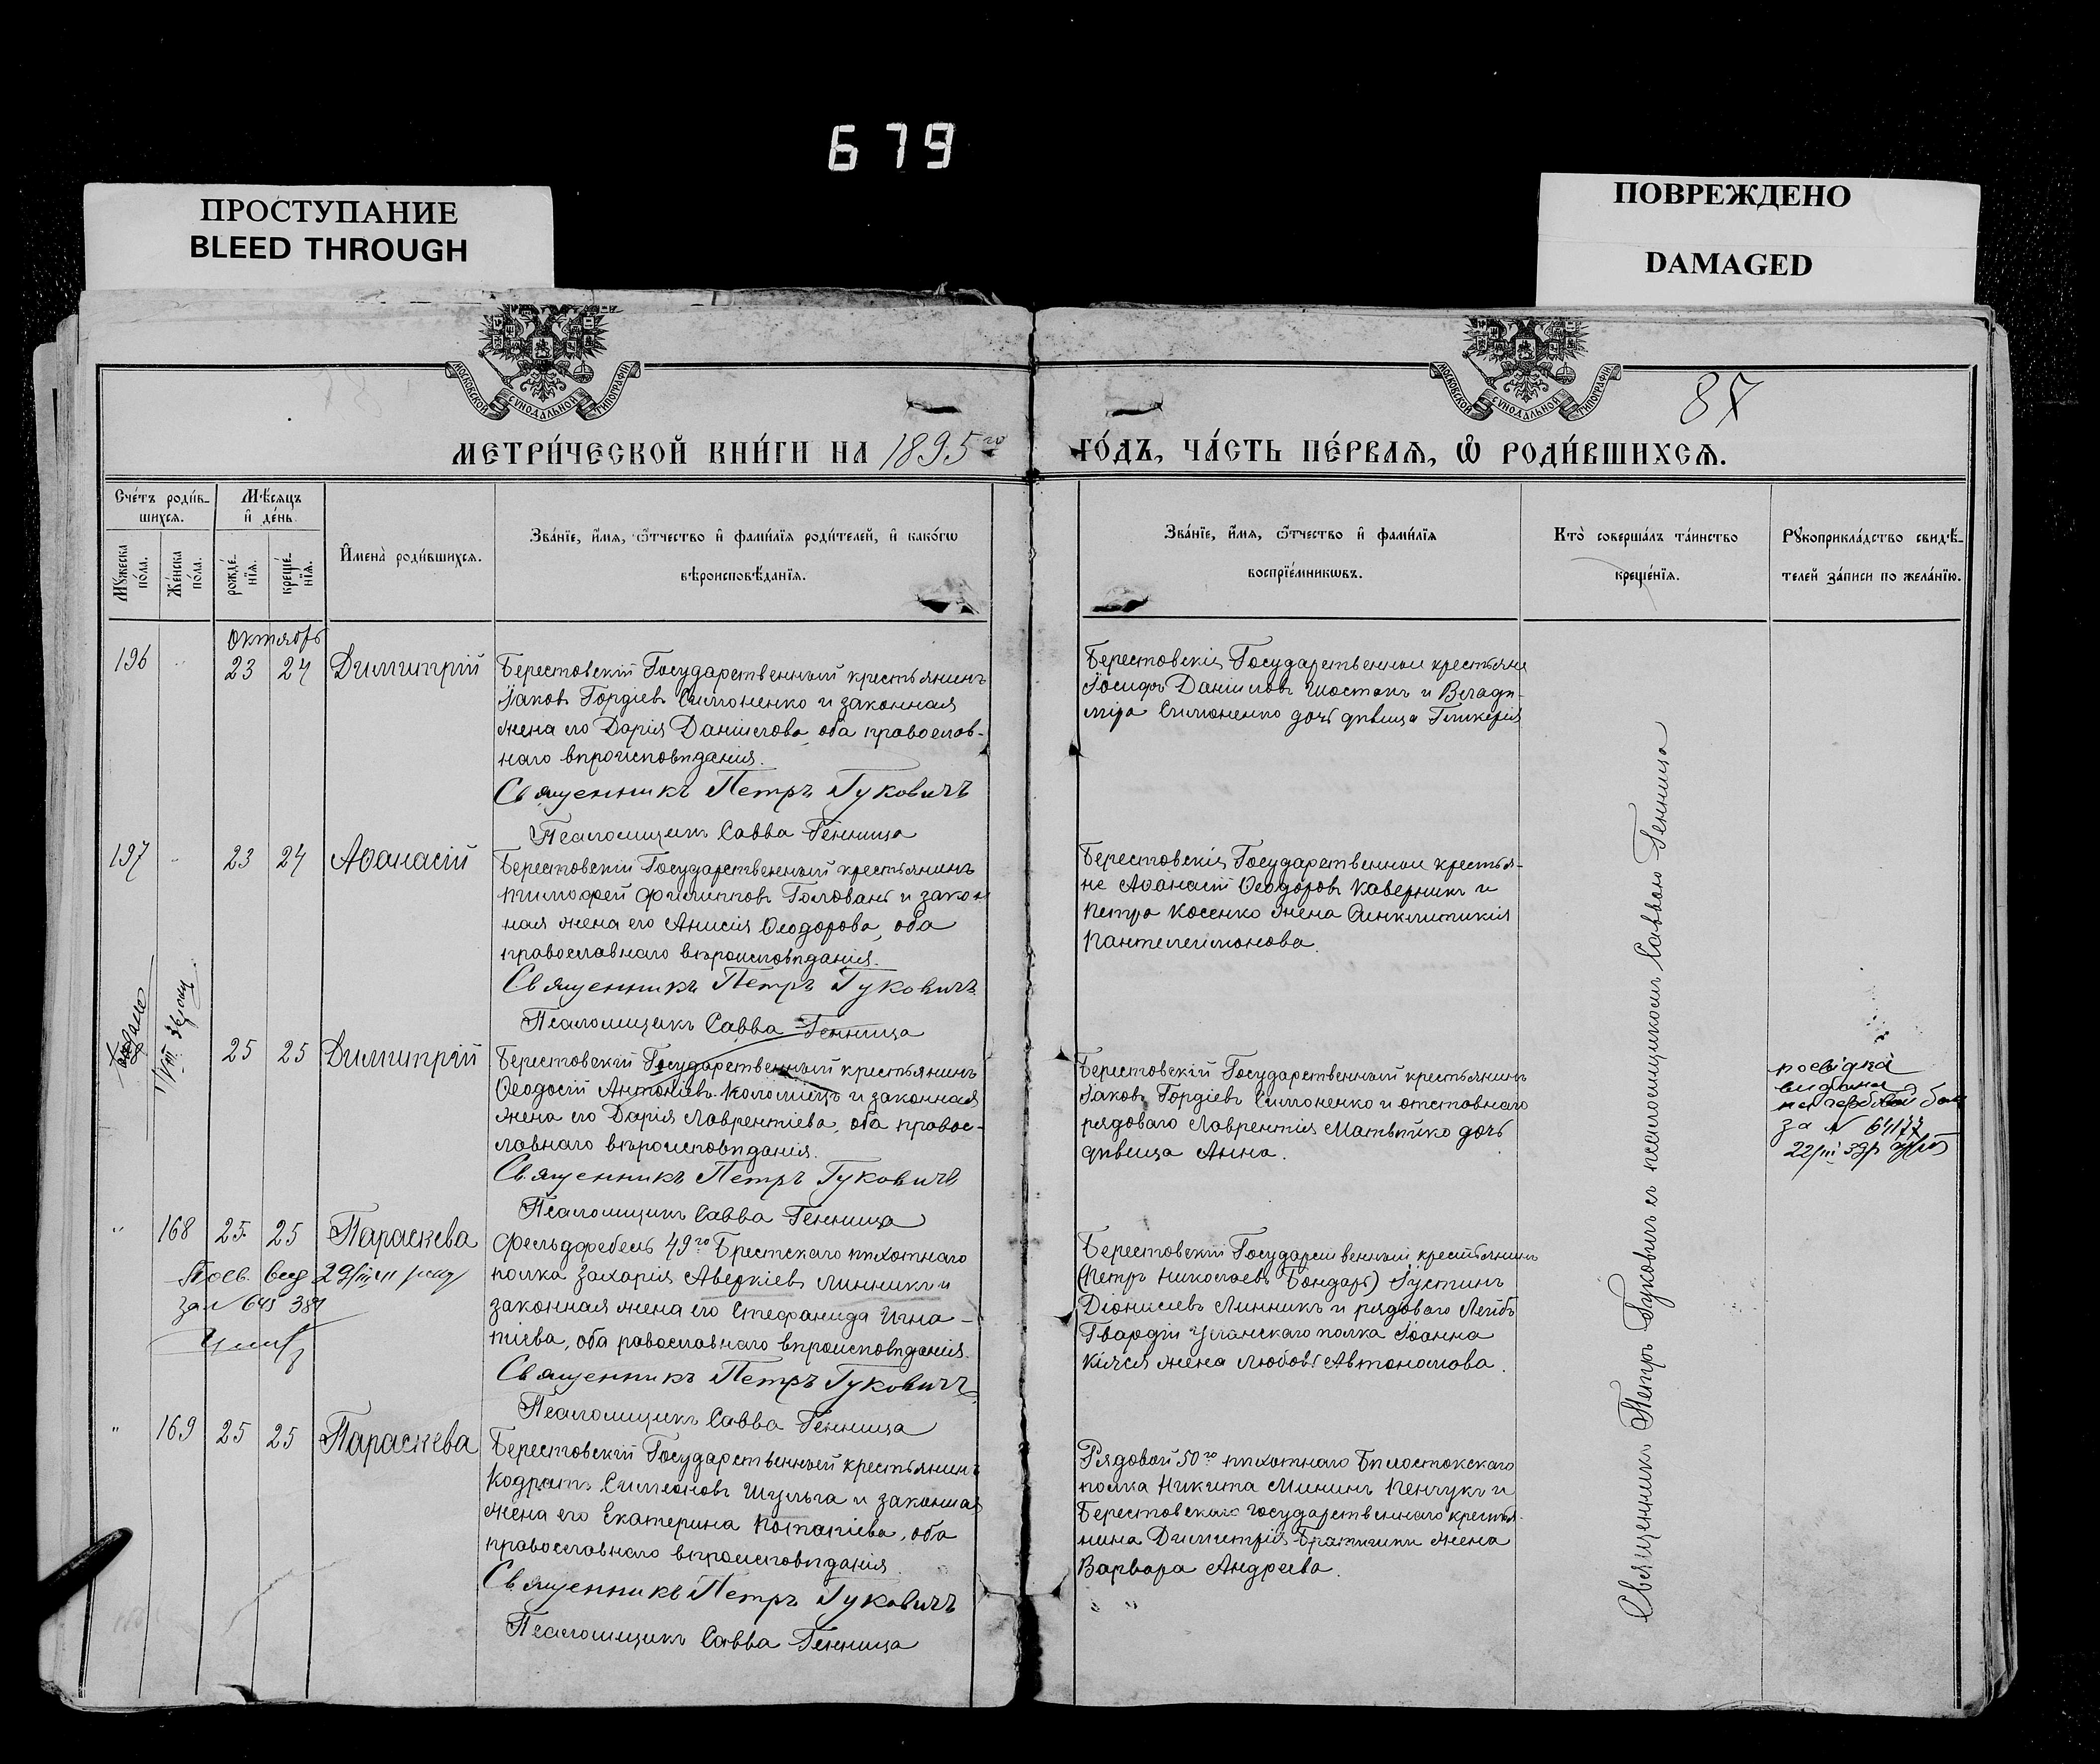 679
ПРОСТУПАНИЕ
BLEED THROUGH
ПОВРЕЖДЕНО
DAMAGED
МОСКОВСКОЙ СѴНОДАЛЬНОЙ ТИПОГРАФІИ
МОСКОВСКОЙ СѴНОДАЛЬНОЙ ТИПОГРАФІИ
87
МЕТРИ́ЧЕСКОЙ КНИ́ГИ НА 1895го
ГО́ДЪ, ЧА́СТЬ ПЕ́РВАѦ, Ѡ҆ РОДИ́ВШИХСѦ.
Сче́тъ роди́в-
шихсѧ.
Мѣ́сѧцъ
и҆ де́нь.
Мꙋ́жеска
по́ла.
Же́нска
по́ла.
рожде́-
нїѧ.
креще́-
нїѧ.
И҆мена̀ роди́вшихсѧ.
Зва́нїе, и҆́мѧ, ѻ҆́тчество и҆ фами́лїѧ роди́телей, и҆ како́гѡ
вѣроисповѣ́данїѧ.
Зва́нїе, и҆́мѧ, ѻ҆́тчество и҆ фами́лїѧ
воспрїе́мникѡвъ.
Кто̀ соверша́лъ та́инство
креще́нїѧ.
Рꙋкоприкла́дство свидѣ́-
телей за́писи по жела́нїю.
Октябрь
196 " 23 24 Димитрій
Берестовскій Государственный крестьянинъ
Іаковъ Гордіевъ Симоненко и законная
жена его Дарія Даніилова, оба православ-
наго вѣроисповѣданія.
Священникъ Петръ Гуковичъ
Псаломщикъ Савва Генница
Берестовскіе Государственные крестьяне
Іосифъ Даніиловъ Шостакъ и Влади-
міра Симоненко дочь дѣвица Гликерія
197 " 23 24 Аѳанасій
Берестовскій Государственный крестьянинъ
Тимофей Филипповъ Головань и закон
ная жена его Анисія Ѳеодорова, оба
православнаго вѣроисповѣданія.
Священникъ Петръ Гуковичъ
Псаломщикъ Савва Генница
Берестовскіе Государственные крестья-
не Аѳанасій Ѳеодоровъ Каверникъ и
Петра Косенко жена Синклитикія
Пантелеимонова.
25 25 Димитрій
Берестовскій Государственный крестьянинъ
Ѳеодосій Антоніевъ Коломіецъ и законная
жена его Дарія Лаврентіева, оба правос-
лавнаго вѣроисповѣданія.
Священникъ Петръ Гуковичъ
Псаломщикъ Савва Генница
Берестовскій Государственный крестьянинъ
Іаковъ Гордіевъ Симоненко и отставнаго
рядоваго Лаврентія Матвѣйко дочь
дѣвица Анна.
посвідка
видана
за №
" 168 25 25 Параскева
Посв. вид 29/III
за №
Фельдфебель 49го Брестскаго пѣхотнаго
полка Захарія Аверкіевъ Линникъ и
законная жена его Стефанида Игна-
тіева, оба равославнаго вѣроисповѣданія.
Священникъ Петръ Гуковичъ
Псаломщикъ Савва Генница
Берестовскій Государственный крестьянинъ
(Петръ Николаевъ Бондарь) Іустинъ
Діонисіевъ Линникъ и рядоваго Лейбъ
Гвардіи Уланскаго полка Іоанна
Кіяся жена Любовь Автономова.
" 169 25 25 Параскева
Берестовскій Государственный крестьянинъ
Кодратъ Симеоновъ Шульга и законная
жена его Екатерина Потапіева, оба
православнаго вѣроисповѣданія.
Священникъ Петръ Гуковичъ
Псаломщикъ Савва Генница
Рядовой 50го пѣхотнаго Бѣлостокскаго
полка Никита Мининъ Пенчукъ и
Берестовскаго государственнаго крестья-
нина Димитрія Братишки жена
Варвара Андреева.
" "
Священникъ Петръ Гуковичъ съ псаломщикомъ Саввою Генница